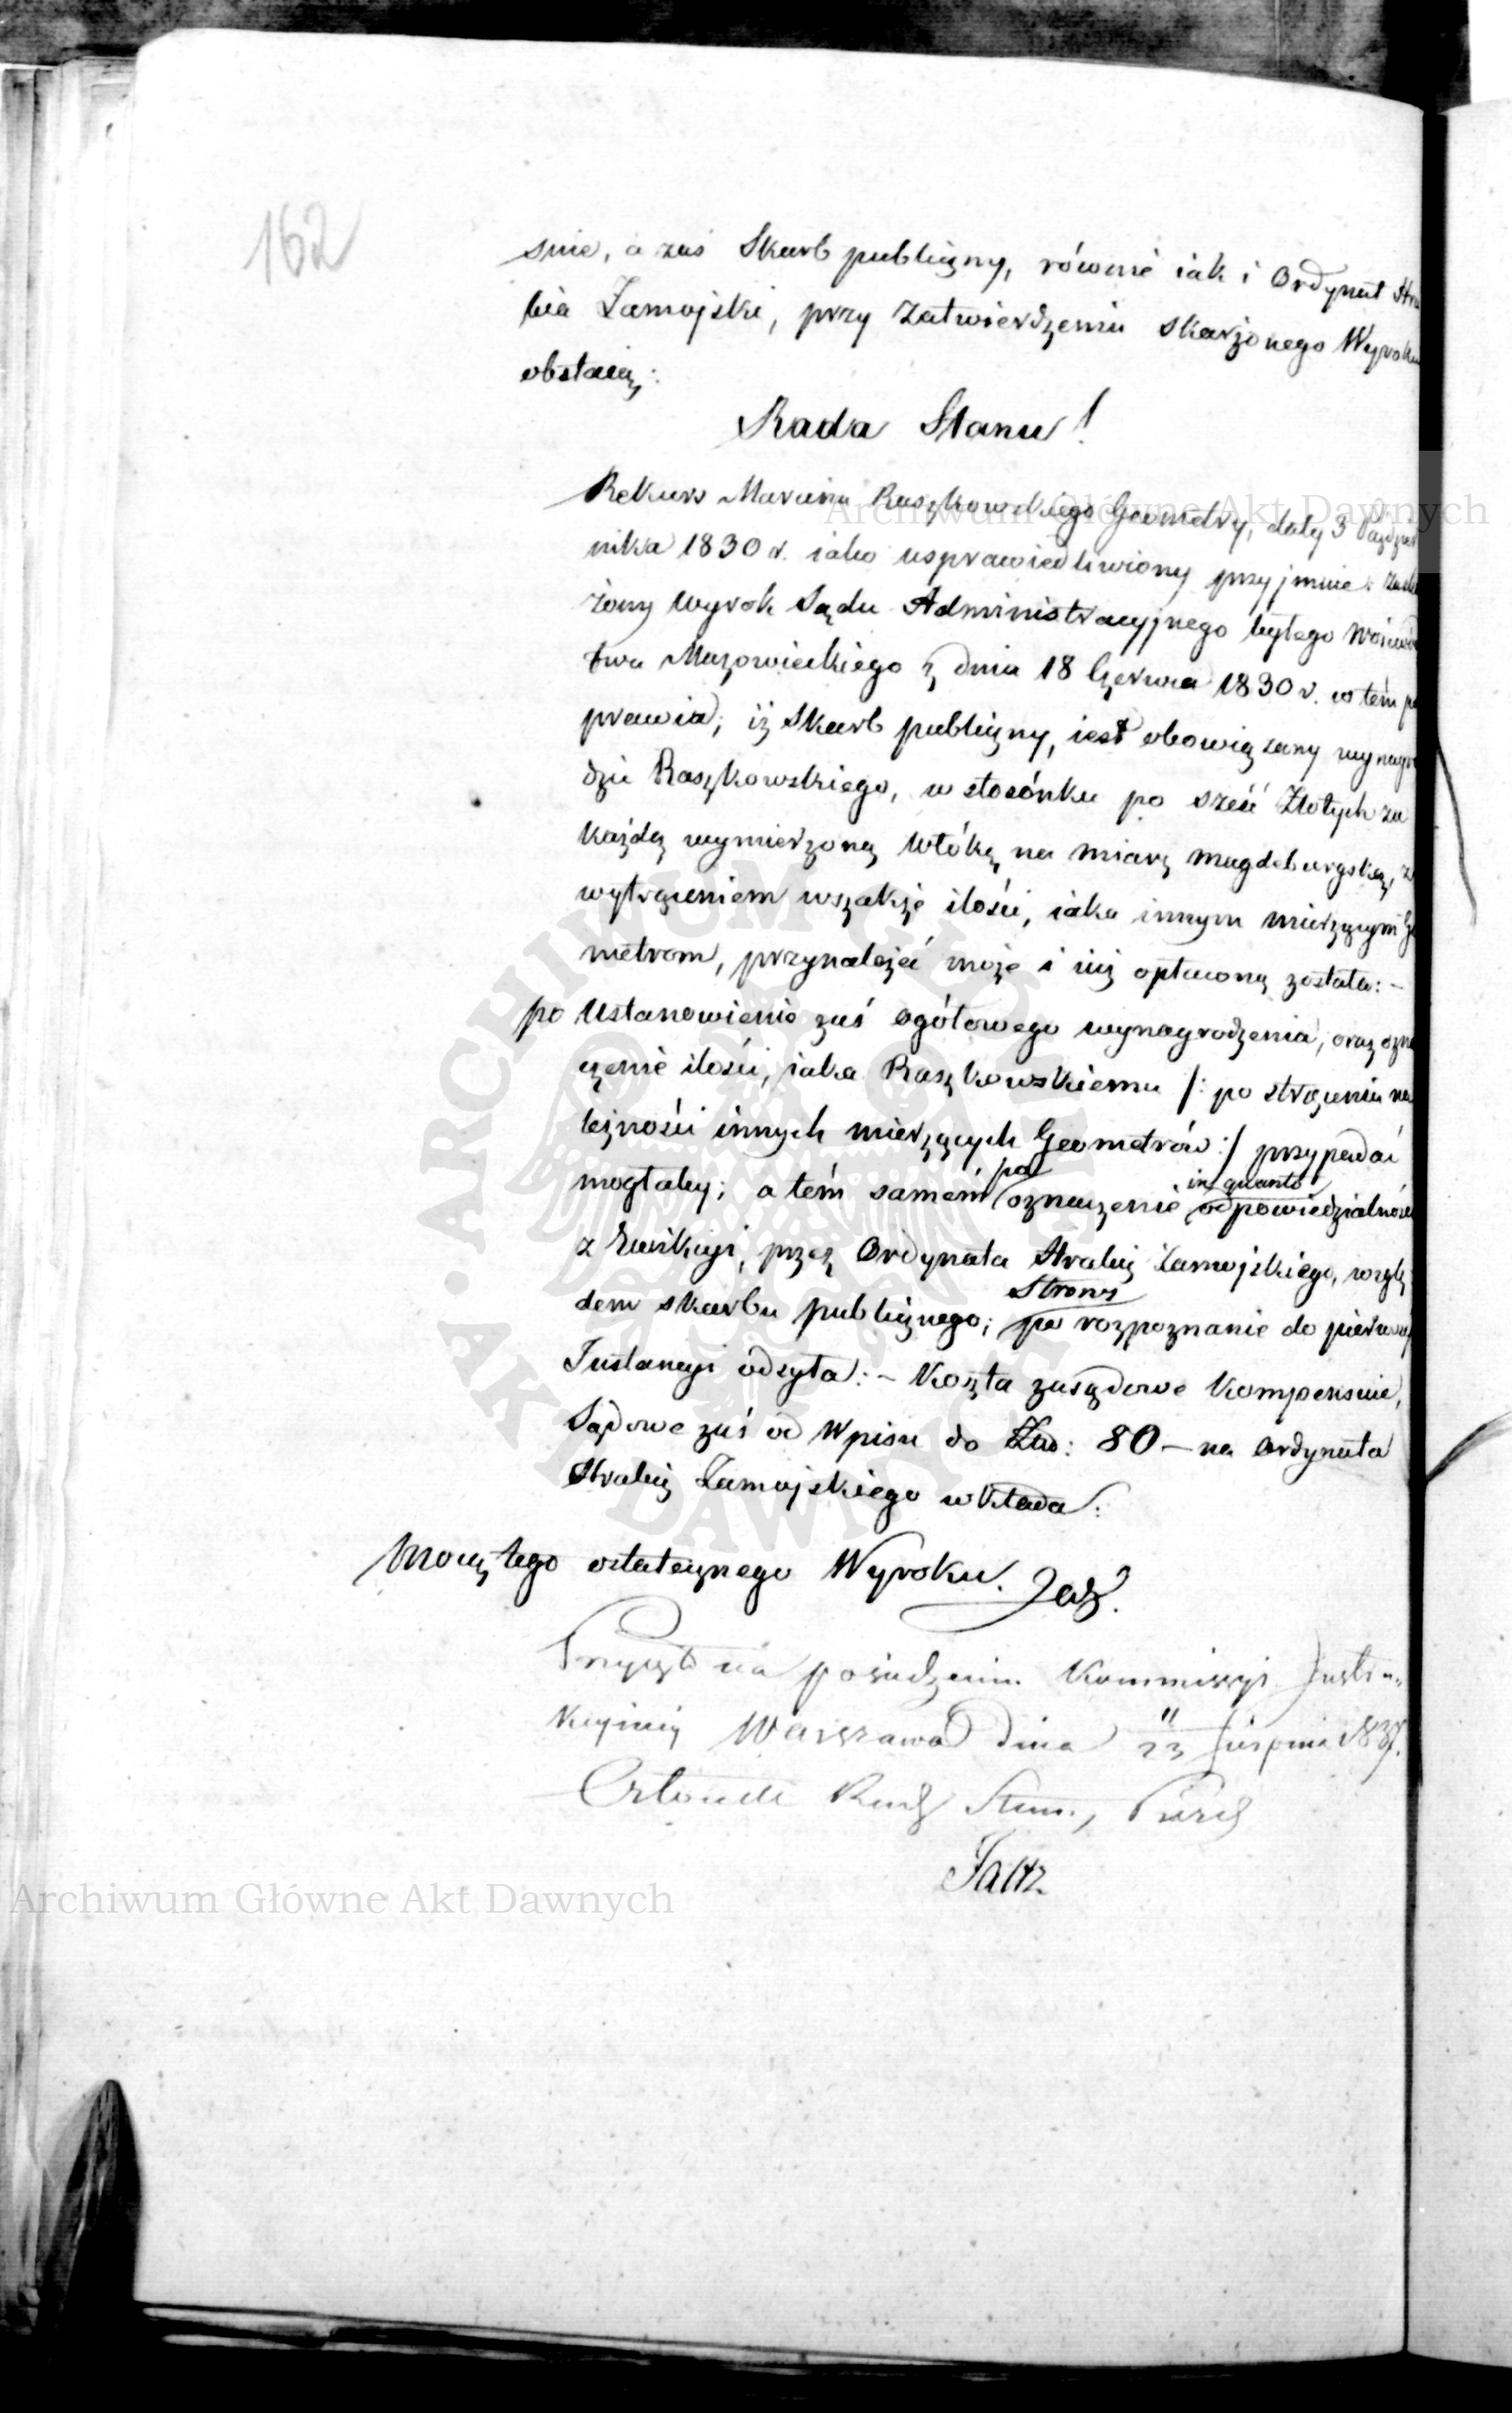 162
snie, a zaś Skarb publiczny, równie iak i Ordynat Hra
bia Zamojski, przy Zatwierdzeniu skarżonego Wyroku
obstaią:
Rada Stanu!
Rekurs Marcina Raszkowskiego Geometry, daty 3 Paździer
nika 1830 r. iako usprawiedliwiony przyjmuie: zaskar
żony Wyrok Sądu Administracyjnego byłego Wojewódz
twa Mazowieckiego z dnia 18 Czerwca 1830 r. w tém po
prawia, iż Skarb publiczny, iest obowiązany wynagro
dzić Raszkowskiego, w stosónku po sześć Złotych za
każdą wymierzoną Włókę na miarę magdeburgską, z
wytrąceniem wszakże ilości, iaka innym mierzącym Geo
metrom, przynależeć może i iuż opłaconą została: -
po Ustanowienie zaś ogółowego wynagrodzenia, oraz ozna
czenie ilości, iaka Raszkowskiemu /: po strąceniu na
leżności innych mierzących Geometrów :/ przypadać
mogłaby; a tém samém po oznaczenie in quanto odpowiedzialności
z Ewikcyi, przez Ordynata Hrabię Zamojskiego, wzglę
dem skarbu publicznego; Strony po rozpoznanie do pierwszej
Instancyi odsyła: - Koszta zasądowe kompensuie,
Sądowe zaś od Wpisu do Złp: 80 - na Ordynata
Hrabię Zamojskiego wkłada:
Mocą tego ostatecznego Wyroku.
na posiedzeniu Kommissyi Instru
kcyjney Warszawa dnia 11/23 Sierpnia
Członek Rady Stanu,